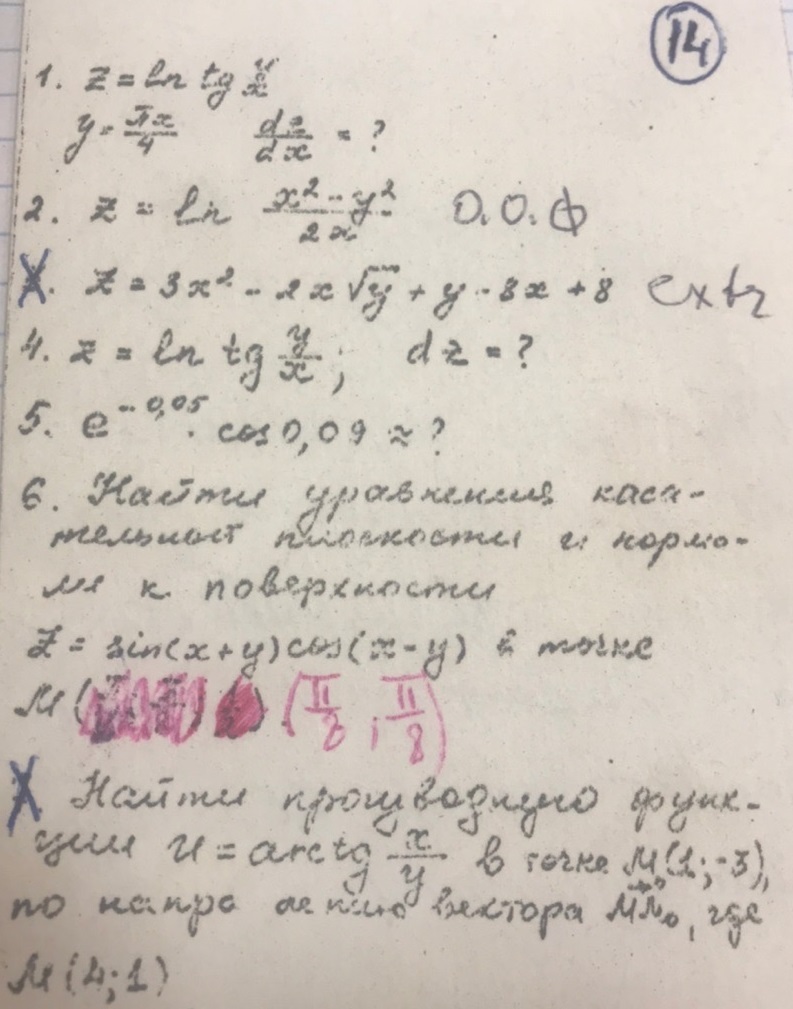 14
1. z = ln tg y/x
y = πx/4 dz/dx = ?
2. z = ln (x² - y²)/2x О.О.Ф
z = 3x² - 2x√y + y - 8x + 8 extr
4. z = ln tg y/x ; dz = ?
5. e^-0,05 · cos 0,09 ≈ ?
6. Найти уравнения каса-
тельной плоскости и норма-
ли к поверхности
z = sin(x+y)cos(x-y) в точке
M (π/8 , π/8)
Найти производную функ-
ции u = arctg x/y в точке M₀(1;-3),
по направлению вектора MM₀, где
M(4;1)